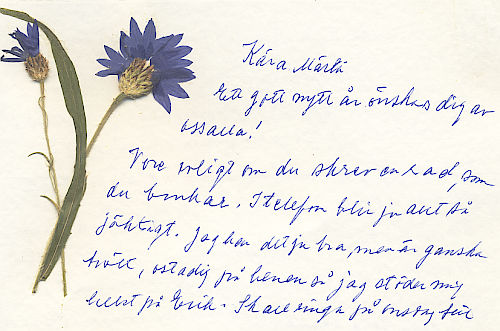 Kära Märta
Ett gott nytt år önskas dig av
oss alla!
Vore roligt om du skrev en rad, som
du brukar. I telefon blir ju allt så
jäktigt. Jag har det ju bra, men är ganska
trött, ostadig på benen så jag stöder mig
helst på Erik. Skall ringa på onsdag